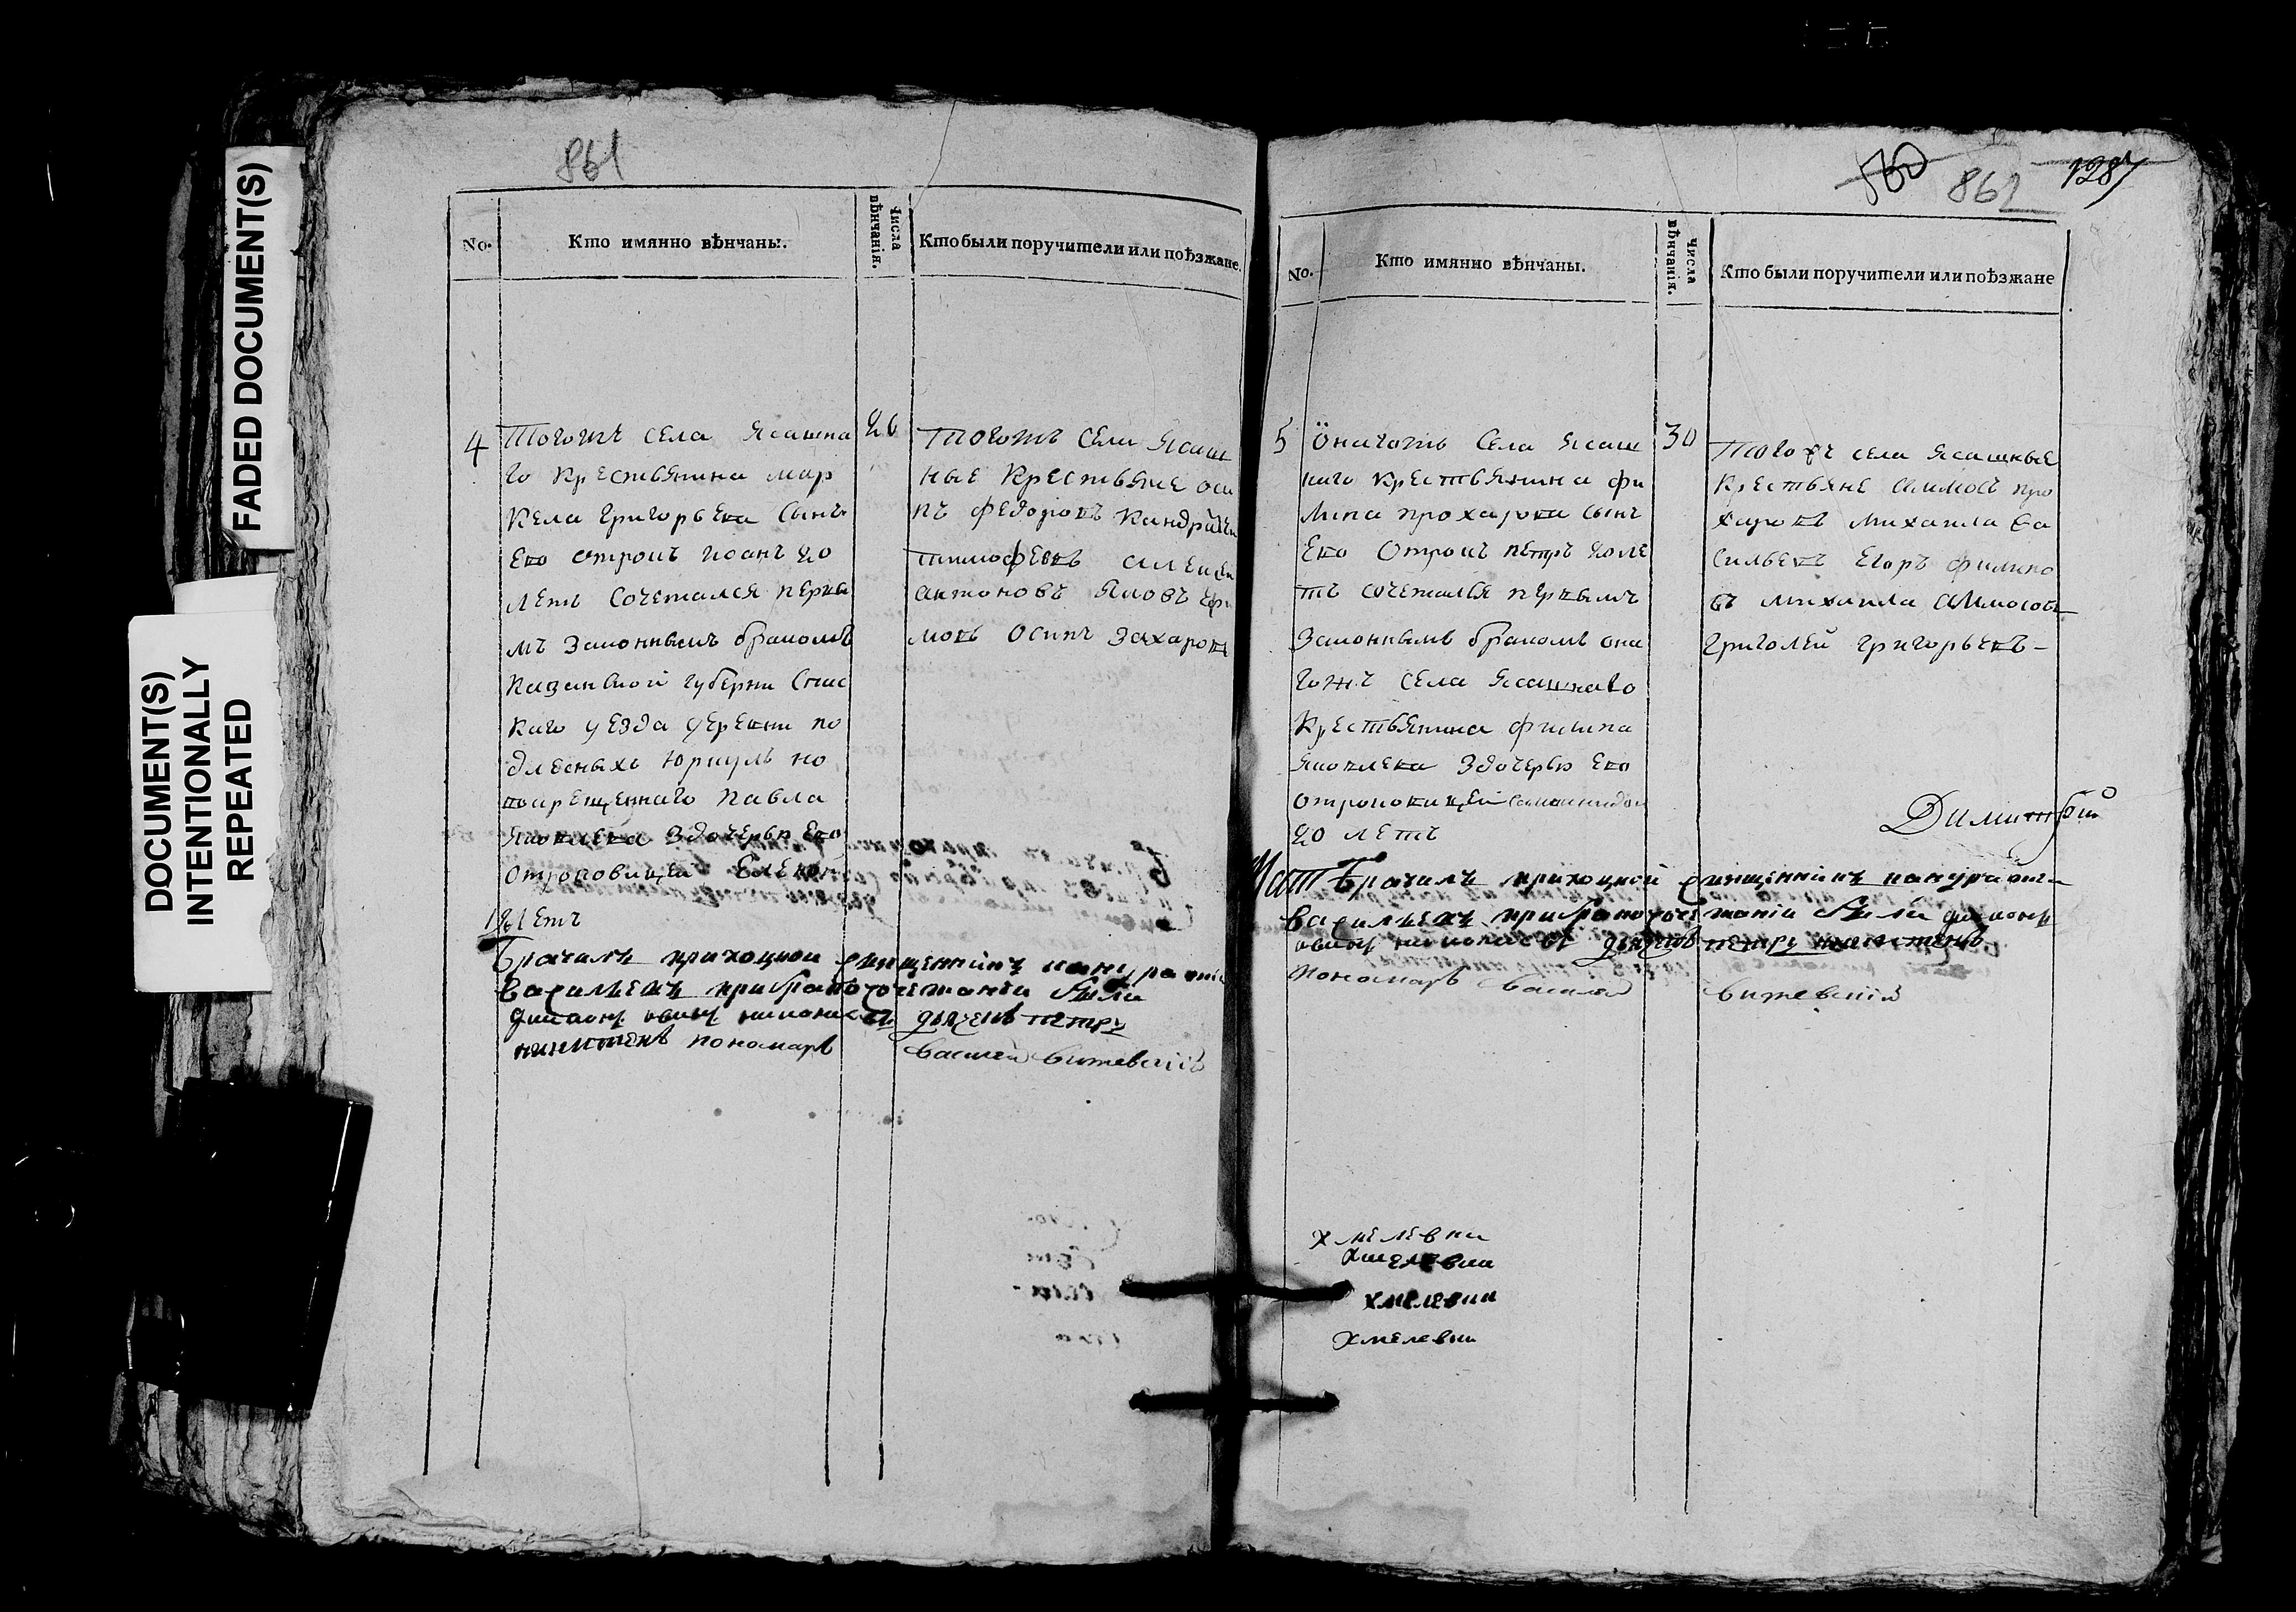 FADED DOCUMENT(S)
DOCUMENT(S)
INTENTIONALLY
REPEATED
861
No.
Кто имянно вѣнчаны.
Числа
вѣнчанія.
Кто были поручители или поѣзжане.
4
Тогожъ села Ясашна
го крестьянина мар
кела григорьева сынъ
Ево отрокъ иоанъ 20
летъ сочетался первы
мъ законнымъ бракомъ
казанской губерни Спас
каго уезда деревни по
длесныхъ Юркуль но
вокрещеннаго павла
Яковлева здочерью Ево
отроковицей Еленой
летъ
26
тогожъ села Ясаш
ные крестьяне оси
пъ федоровъ
тимофеевъ алексей
антоновъ яковъ
мовъ осипъ захаровъ
Брачилъ приходской священникъ
Васильевъ при бракосочетании были
дьячекъ петръ
никитинъ пономарь василей витевский
560
862
1287
No.
Кто имянно вѣнчаны.
Числа
вѣнчанія.
Кто были поручители или поѣзжане
5
Онагожъ села Ясаш
наго крестьянина фи
липа прохарова сынъ
Ево отрокъ петръ 20 ле
тъ сочетался первымъ
законнымъ бракомъ она
гожъ села Ясашнаго
крестьянина филипа
Яковлева здочерью Ево
отроковицей
20 летъ
30
Тогожъ села Ясашные
крестьяне амосъ про
харовъ михаила ва
сильевъ Егоръ филипо
въ михаила амосовъ
григорей григорьевъ
Димитрий
Брачилъ приходской священникъ
Васильевъ при бракосочетании были
дьячекъ петръ никитинъ
пономарь василей витевский
хмелевки
хмелевки
хмелевки
хмелевки